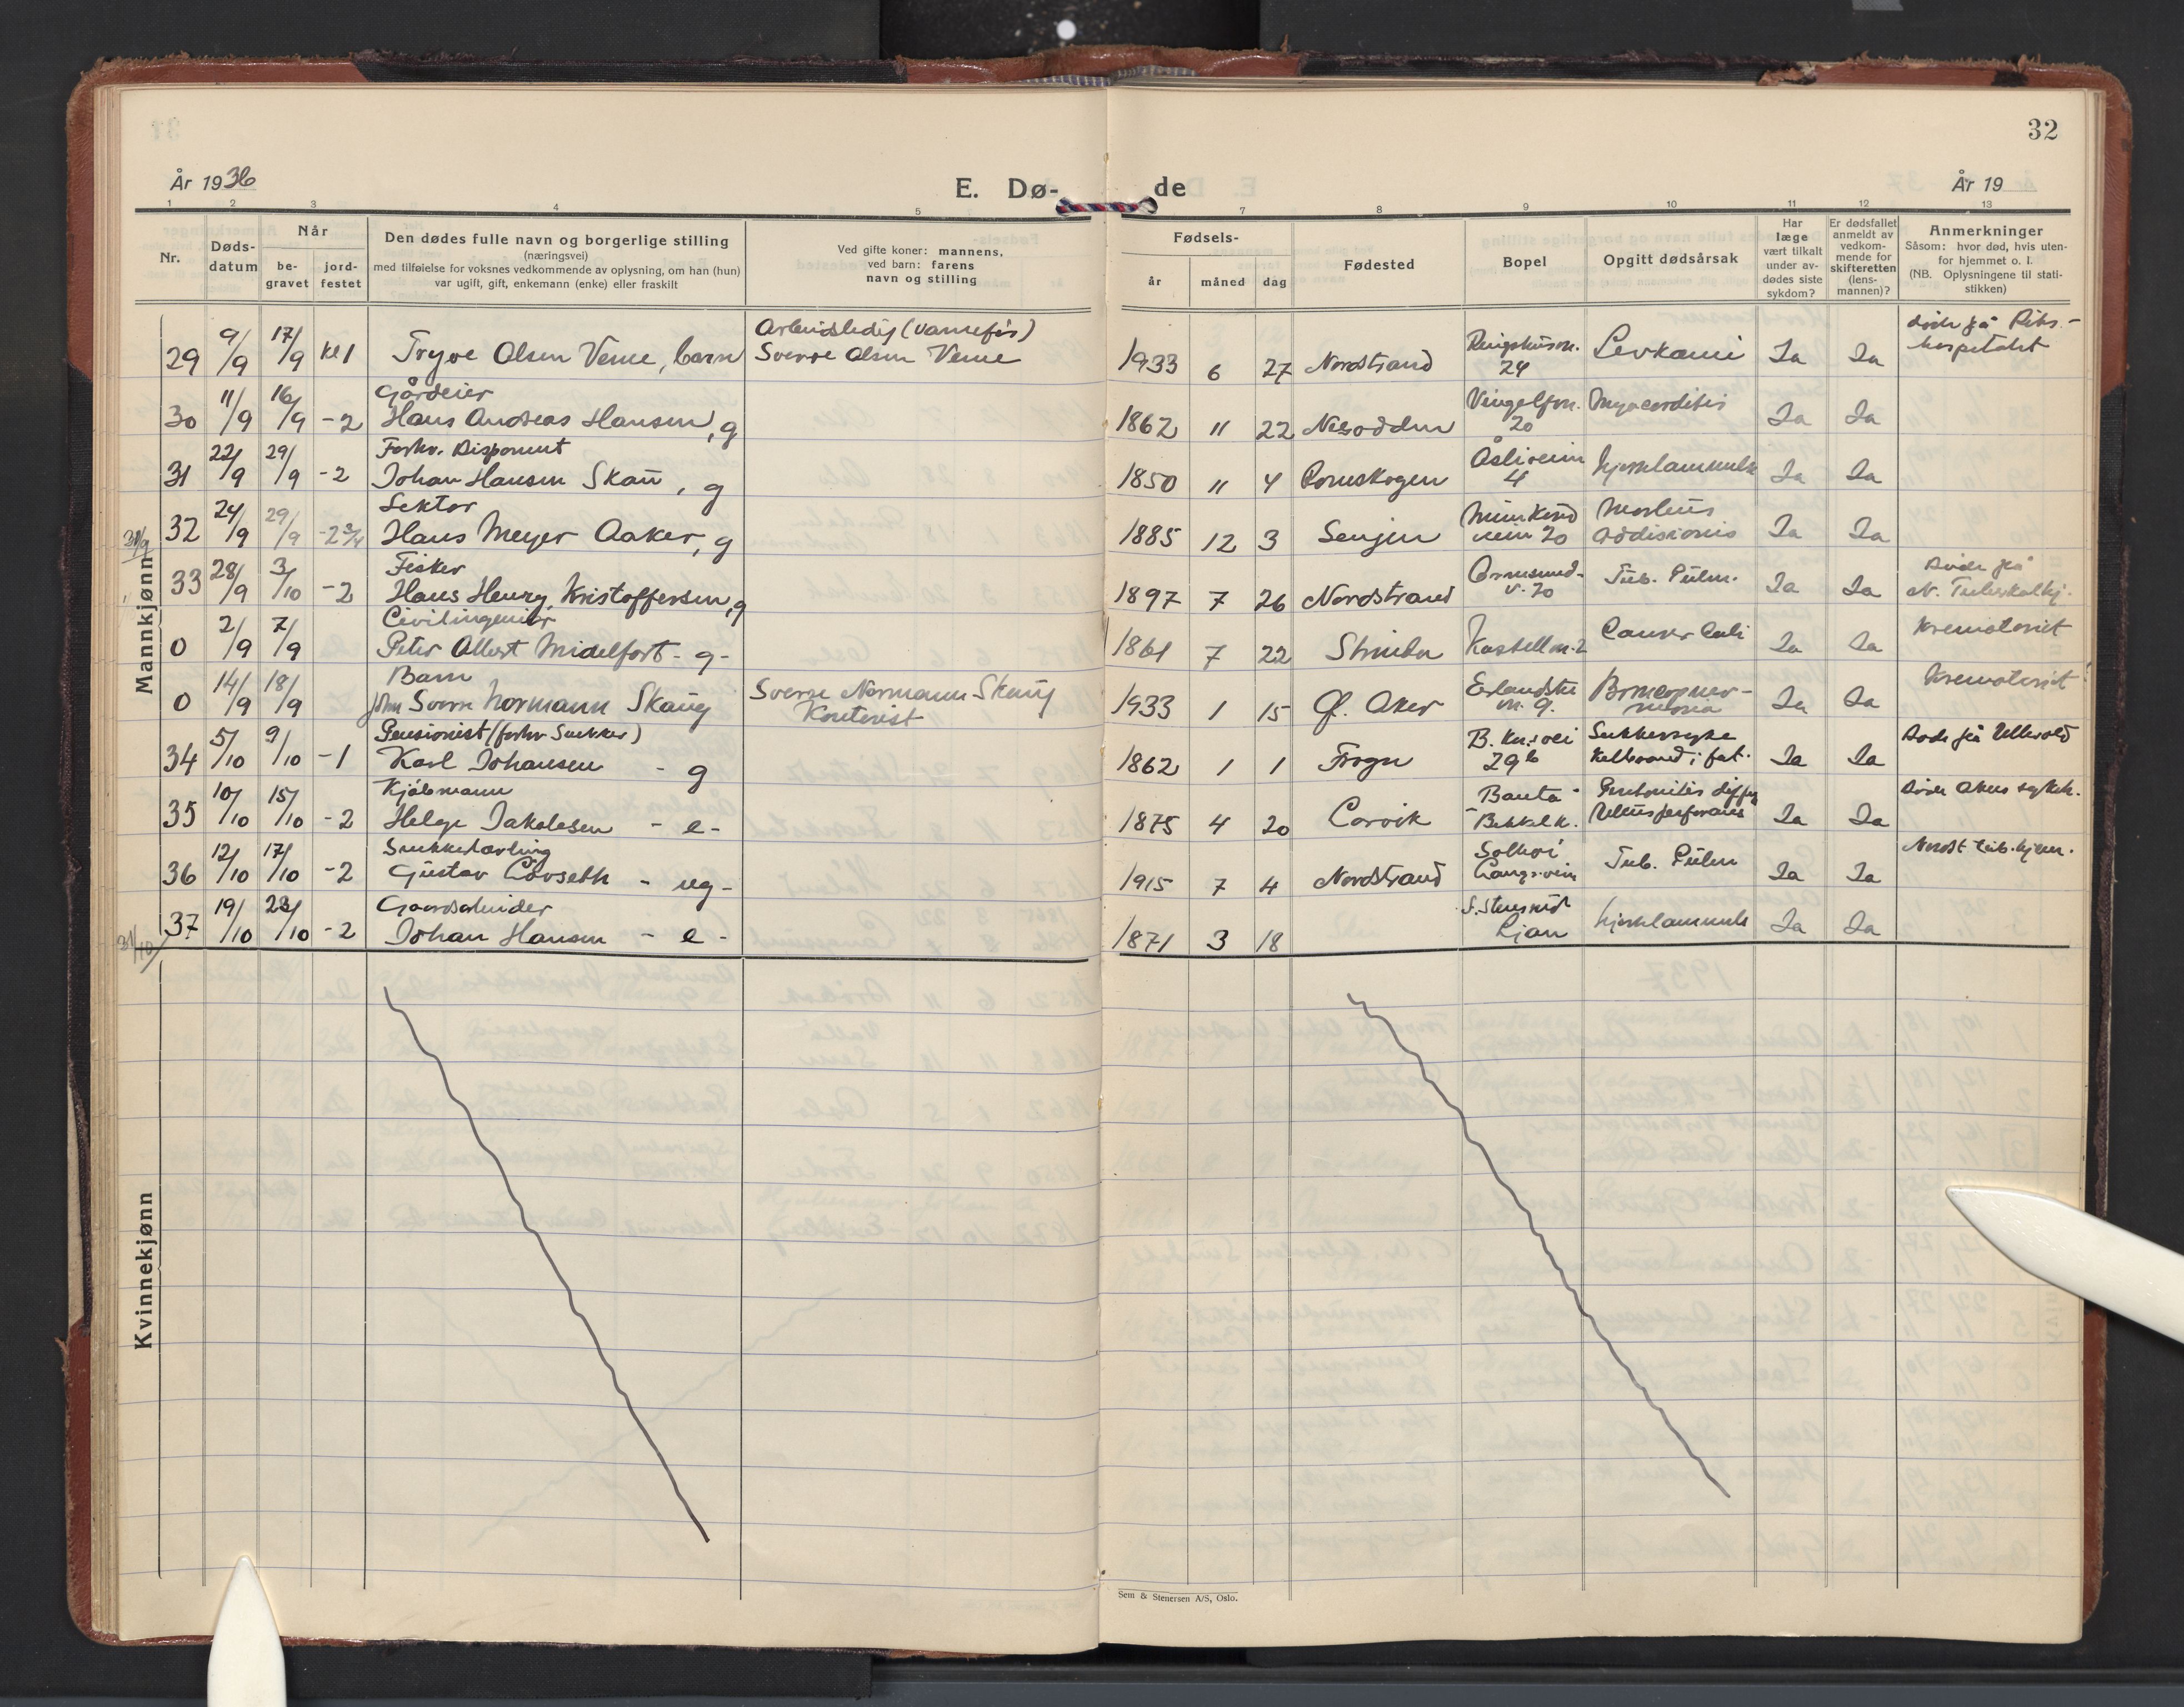 32
År 1936
E. Dø-
de
År 19
1 2 3 4 5 7 8 9 10 11 12 13
Nr.
Døds-
datum
Når
be-
gravet
jord-
festet
Den dødes fulle navn og borgerlige stilling
(næringsvei)
med tilføielse for voksnes vedkommende av oplysning, om han (hun)
var ugift, gift, enkemann (enke) eller fraskilt
Ved gifte koner: mannens,
ved barn: farens
navn og stilling
Fødsels-
år måned dag
Fødested
Bopel
Opgitt dødsårsak
Har
læge
vært tilkalt
under av-
dødes siste
sykdom?
Er dødsfallet
anmeldt av
vedkom-
mende for
skifteretten
(lens-
mannen)?
Anmerkninger
Såsom: hvor død, hvis uten-
for hjemmet o. l.
(NB. Oplysningene til stati-
stikken)
Mannkjønn
Arbeidsledig (vanefør)
døde på Riks.-
29 9/9 17/9 kl 1 Trygve Olsen Venne, barn Sverre Olsen Venne 1933 6 27 Nordstrand 24 Levkemi Ja Ja hospitalet
Gårdeier
30 11/9 16/9 -2 Hans Andreas Hansen, g 1862 11 22 Nesodden 20 Myocarditis Ja Ja
Forhv. Disponent
31 22/9 29/9 -2 Johan Hansen Skau, g 1850 11 4 Romskogen Åsliveien 4 hjertelammelse Ja Ja
31/9
Lektor
32 24/9 29/9 -2 3/4 Hans Meyer Aaker, g 1885 12 3 Senjen Munkerud veien 20 Morbus Addisionis Ja Ja
Fisker
Døde på
33 28/9 3/10 -2 Hans Henry Kristoffersen, g 1897 7 26 Nordstrand Ormsund- v. 20 Tub. Pulm. Ja Ja N. Tuberkelhj.
Civilingeniør
0 2/9 7/9 Peter Albert Midelfort - g - 1861 7 22 Strinda Kastellv. 2 Cancer Coli Ja Ja Krematoriet
Barn
0 14/9 18/9 John Sverre Normann Skaug Sverre Normann Skaug
Kontorist
1933 1 15 Ø. Aker v. 9. Ja Ja Krematoriet
Pensionist (forhv Snekker)
34 5/10 9/10 -1 Karl Johansen - g 1862 1 1 Frogn B. Kr. vei 29b Sukkersyke Kolbrand i fot. Ja Ja Døde på Ullevold
Kjøbmann
35 10/10 15/10 -2 Helge Jakobsen - e - 1875 4 20 Larvik Bauta - Bekkel. Peritonitis diffus Ulcus perforans Ja Ja Døde Akers sykeh.
Snekkerlærling
36 12/10 17/10 -2 Gustav Løvseth - ug - 1915 7 4 Nordstrand Solhøi Langsveien Tub. Pulm Ja Ja Nordst tub. hjem.
Gaardsarbeider
37 19/10 23/10 -2 Johan Hansen - e - 1871 3 18 S. Stensrud Ljan hjertelammelse Ja Ja
31/10
Kvinnekjønn
Sem & Stenersen A/S, Oslo.